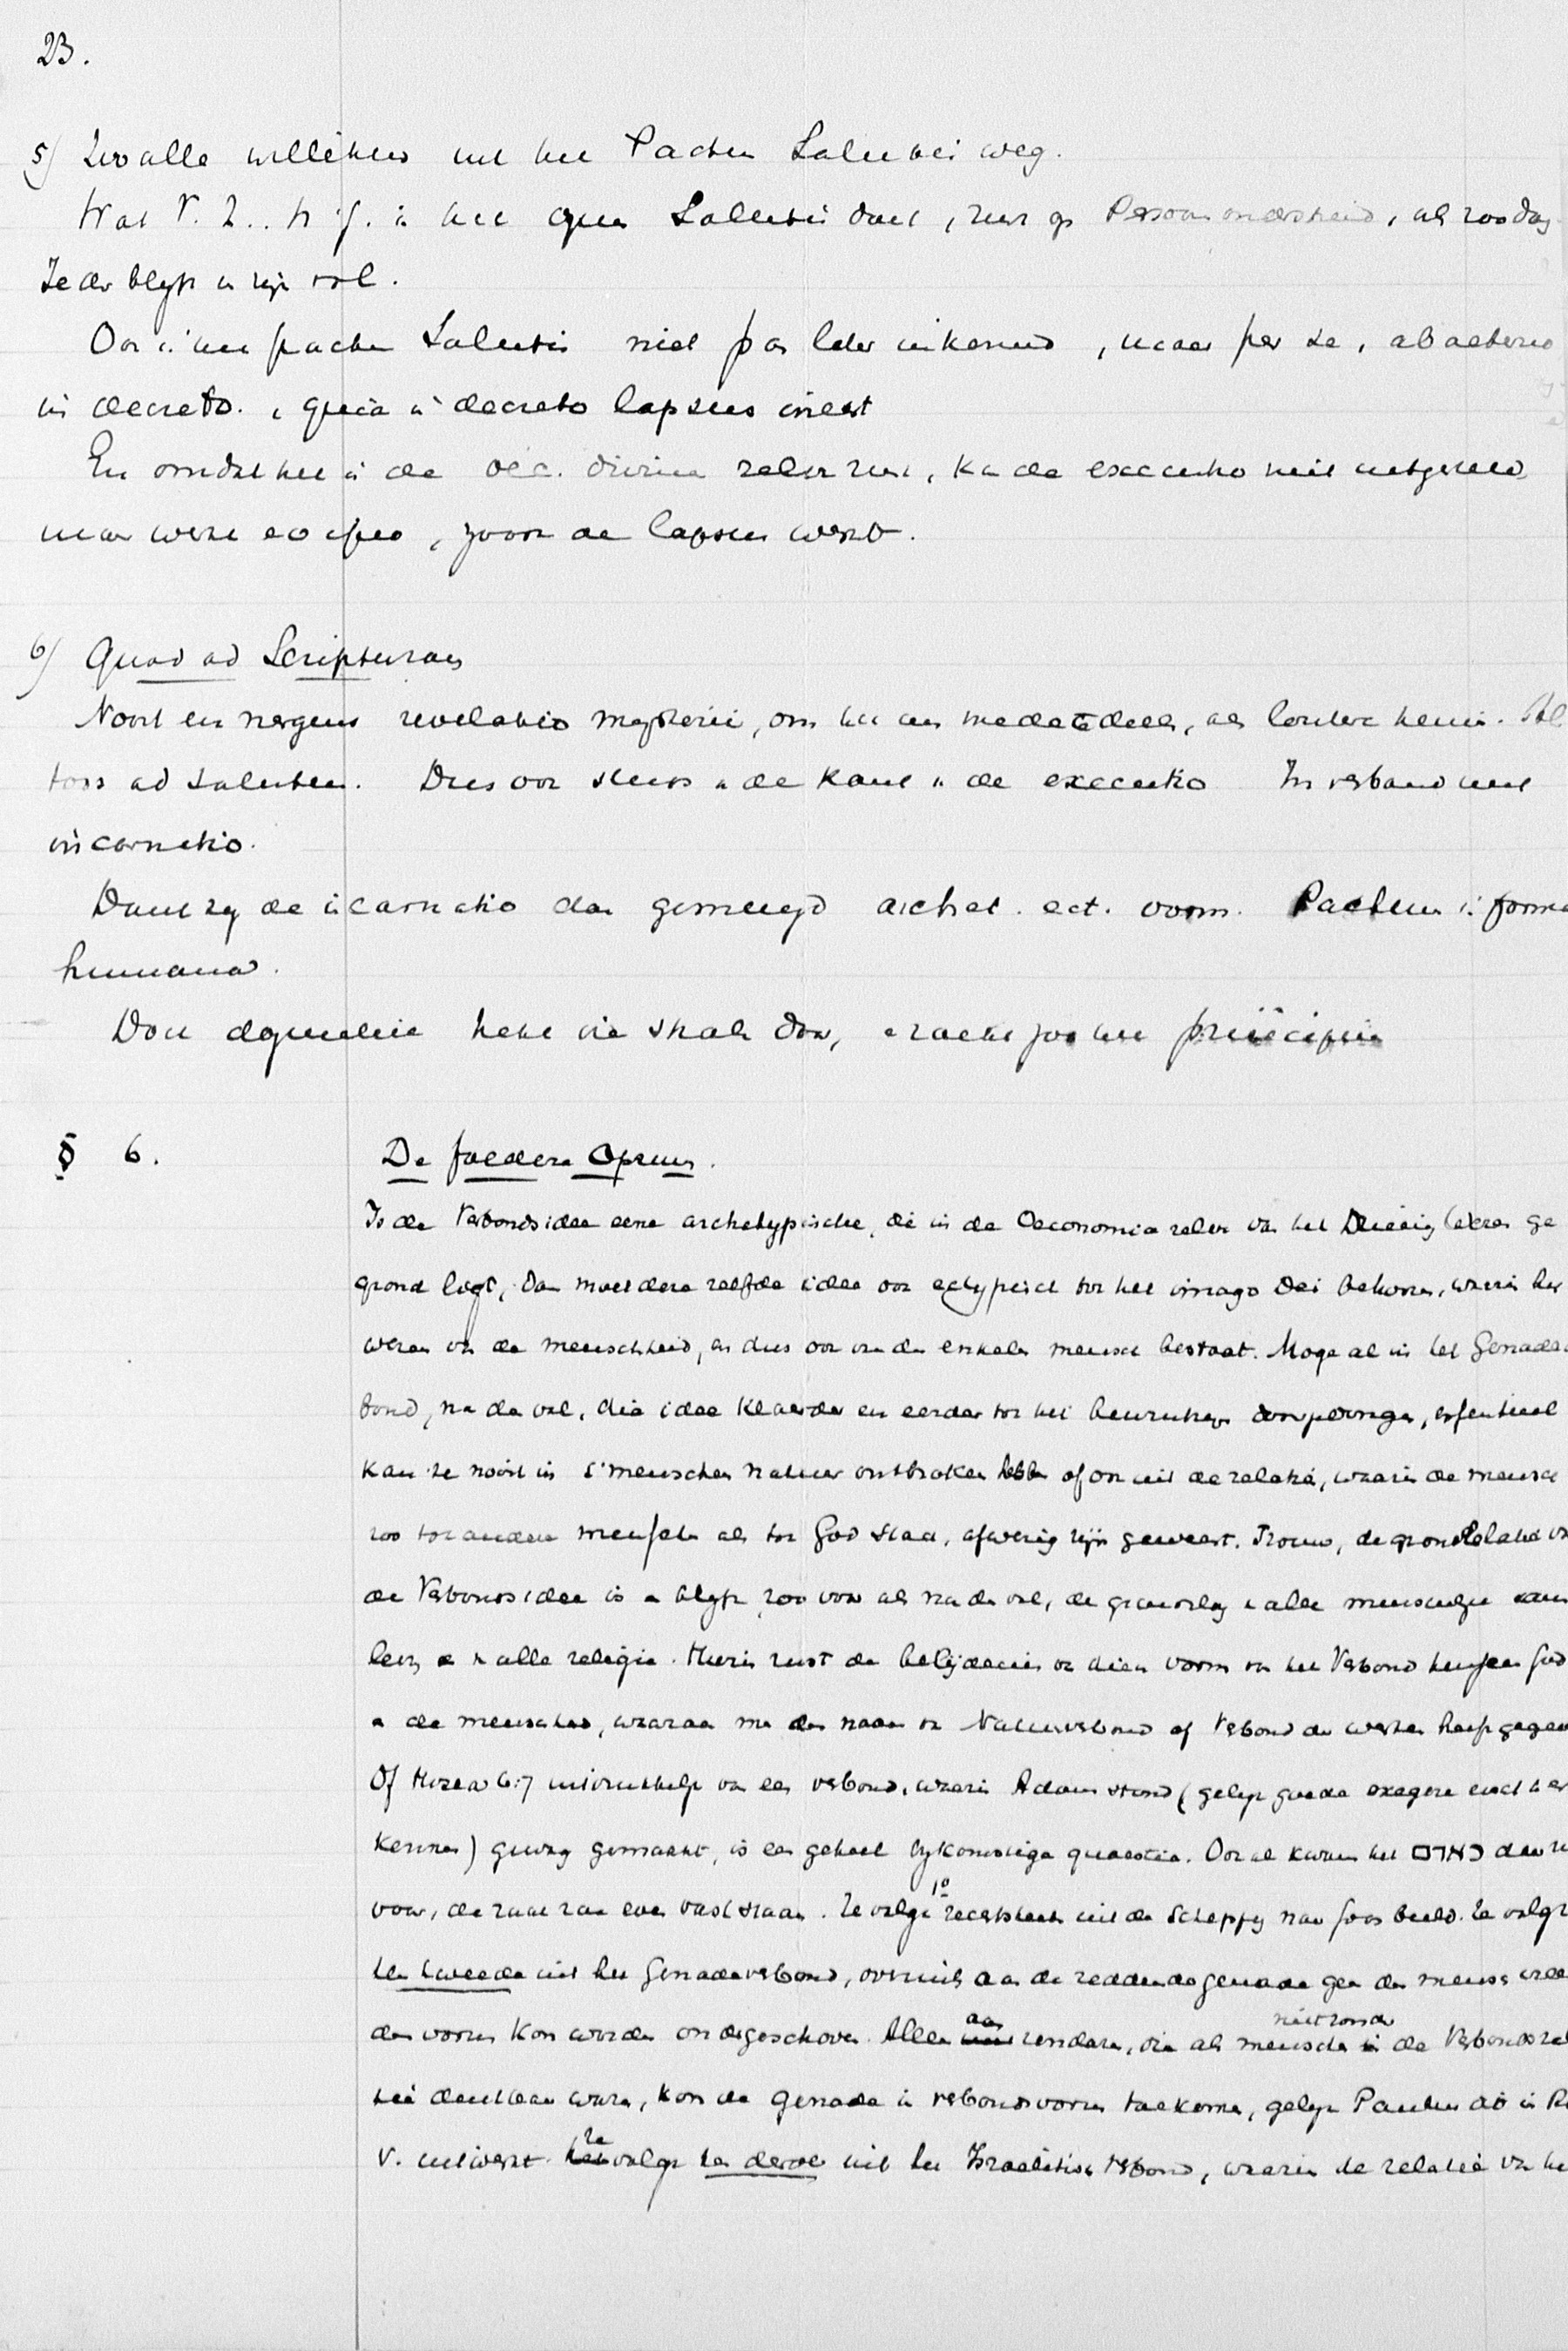 23.
5) Zoo alle willekeur uit het Pactum Salutis weg.
Wat V. Z. H. G. in het opus Salutis doet, rust op Persoonsonderscheid, als zoodanig
Ieder blyft in zijn rol.
Ook in het pactum Salutis niet pas later inkomend, maar per se, ab aeterno
in decreto, quia in decreto lapsus inest
En omdat het in de oec. divina zelve rust, kan de executio niet uitgesteld,
maar werkt eo ipso, zoodra de lapsus werkt.
6) Quod ad Scripturam
Nooit en nergens revelatio mysterii, om het mede te deelen, als loutere kennis.
toos ad salutem. Dus ook steeds de kant de executio In verband met
incarnatio.
Dank zij de incarnatio dan gemengd archet. ect. vorm. Pactum in forma
humana.
Door dogmatici die dan, principium
§ 6. De foedere Operum.
Is de Verbondsidee eene archetypische, die in de Oeconomia zelve van het Drieëenig Wezen ge
grond ligt, dan moet deze zelfde idee ook ectypisch tot het imago Dei behooren, waarin het
wezen van de menschheid, en dus ook van den enkelen mensch bestaat. Moge al in het Genadever
bond, na de val, die idee klaarder en eerder tot het bewustzijn doorgedrongen, essentieel
kan ze nooit in 's menschen natuur ontbroken hebben of ook uit de relatie, waarin de mensch
zoo tot andere menschen als tot God staat, afwezig zijn geweest. Trouw, de grondrelatie van
de Verbondsidee is en blyft zoo voor als na de val, de grondslag van alle menschelijk saam
leven en van alle religie. Hierin rust de belijdenis van dien vorm van het Verbond tusschen God
en de menschheid, waaraan men den naam van Natuurverbond of Verbond der werken heeft gegeven
Of Hosea 6:7 uitdrukkelijk van een verbond, waarin Adam stond (gelijk goede exegese eischt te er
kennen) gewag gemaakt, is een geheel bykomstige quaestie. Ook al kwam het כאדם daar niet
voor, de zaak zou even vast staan. Ze volgt 1º rechtstreeks uit de Schepping naar Gods beeld. Ze volgt
ten tweede uit het Genadeverbond, overmits aan de reddende genade geen den mensch vreem
den vorm kon worden ondergeschoven. Alleen aan zondaren, die als mensch niet zonder de Verbondsrela
tie denkbaar waren, kon de genade in verbondsvorm toekomen, gelijk Paulus dit in Rom
V. uitwerkt. Ze volgt ten derde uit het Israelitisch Verbond, waarin de relatie van het